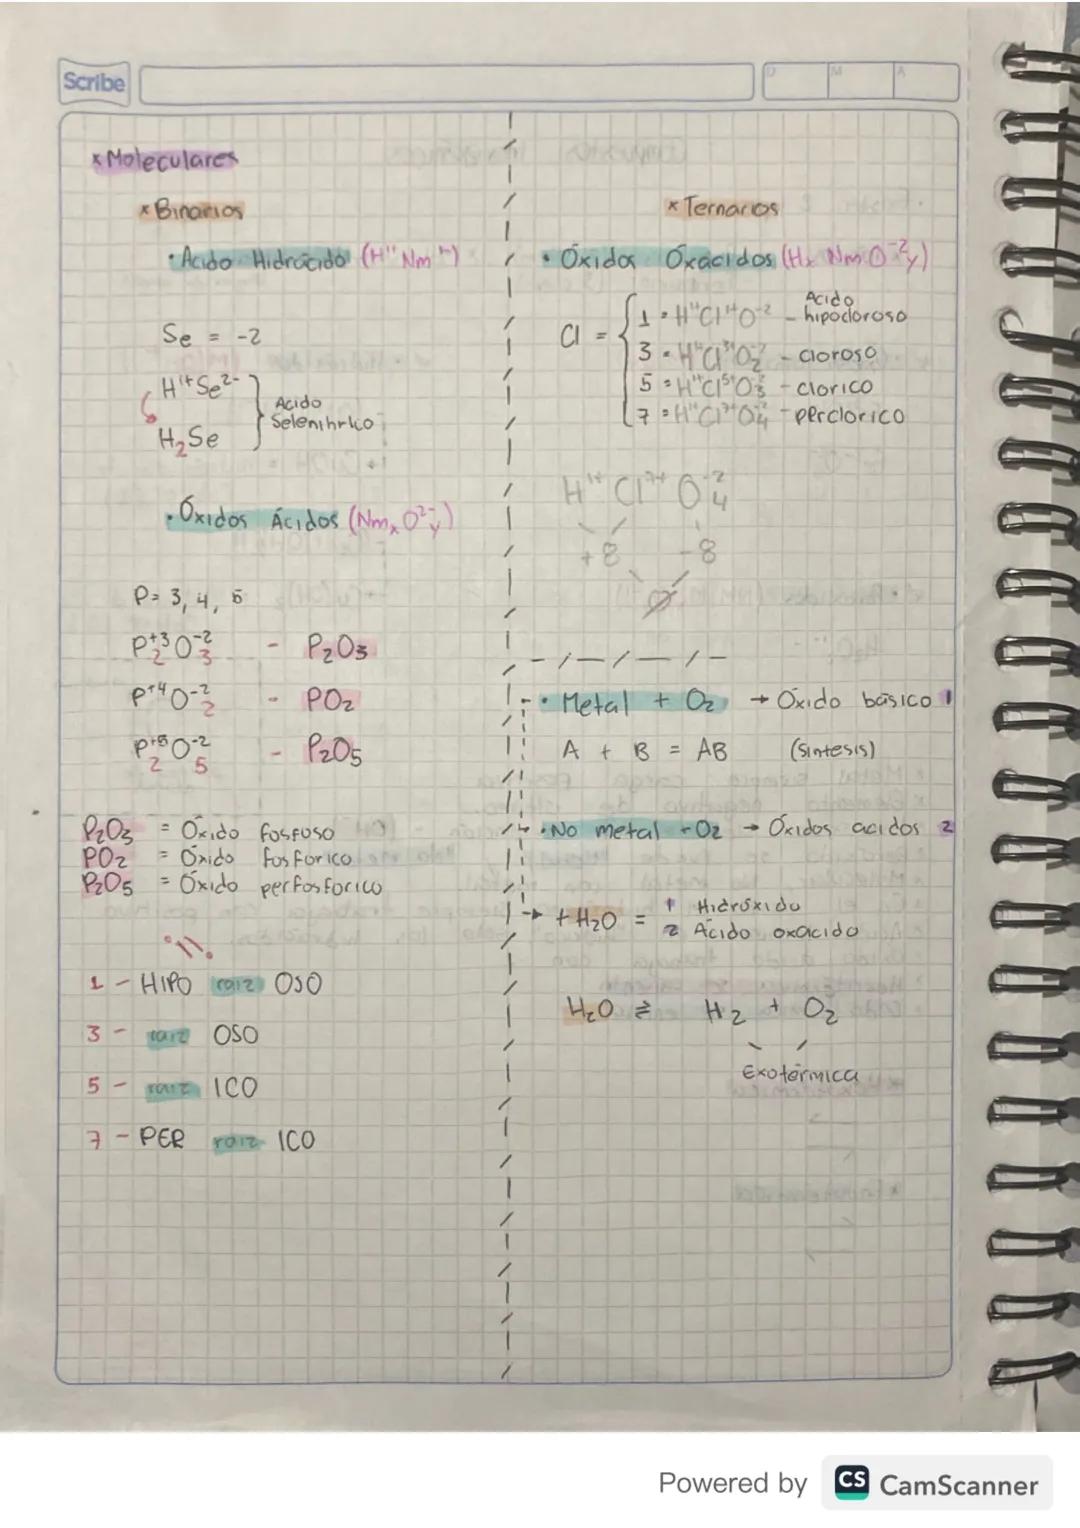 Scribe
D M A
x Moleculares
x Binarios
• Ácido Hidrácido (H¹⁺ Nm⁻)
Se = -2
H¹⁺Se²⁻
H₂Se
Acido
Selenihrico
• Óxidos Ácidos (NmₓO²⁻y)
P= 3, 4, 5
P⁺³₂O⁻²₃ - P₂O₃
P⁺⁴O⁻²₂ - PO₂
P⁺⁵₂O⁻²₅ - P₂O₅
P₂O₃ = Óxido fosfoso
PO₂ = Óxido fosforico
P₂O₅ = Óxido perfosforico
1 - HIPO raiz OSO
3 - raiz OSO
5 - raiz ICO
7 - PER raiz ICO
x Ternarios
• Óxidos Oxácidos (Hₓ Nm O⁻²y)
Cl =
1 = H¹⁺Cl¹⁺O⁻² - Acido hipocloroso
3 = H¹⁺Cl³⁺O⁻²₂ - cloroso
5 = H¹⁺Cl⁵⁺O⁻²₃ - clorico
7 = H¹⁺Cl⁷⁺O⁻²₄ - perclorico
H¹⁺ Cl⁷⁺ O⁻²₄
+8 -8
0
• Metal + O₂ → Óxido básico 1
A + B = AB (síntesis)
• No metal + O₂ → Óxidos acidos 2
+ H₂O = 1 Hidróxido
2 Ácido oxacido
H₂O ⇌ H₂ + O₂
Exotérmica
Powered by CS CamScanner